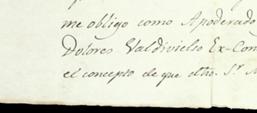 me obligo como Apoderado
Dolores Valdivielso Ex-Con
el concepto de que dho. Sr.